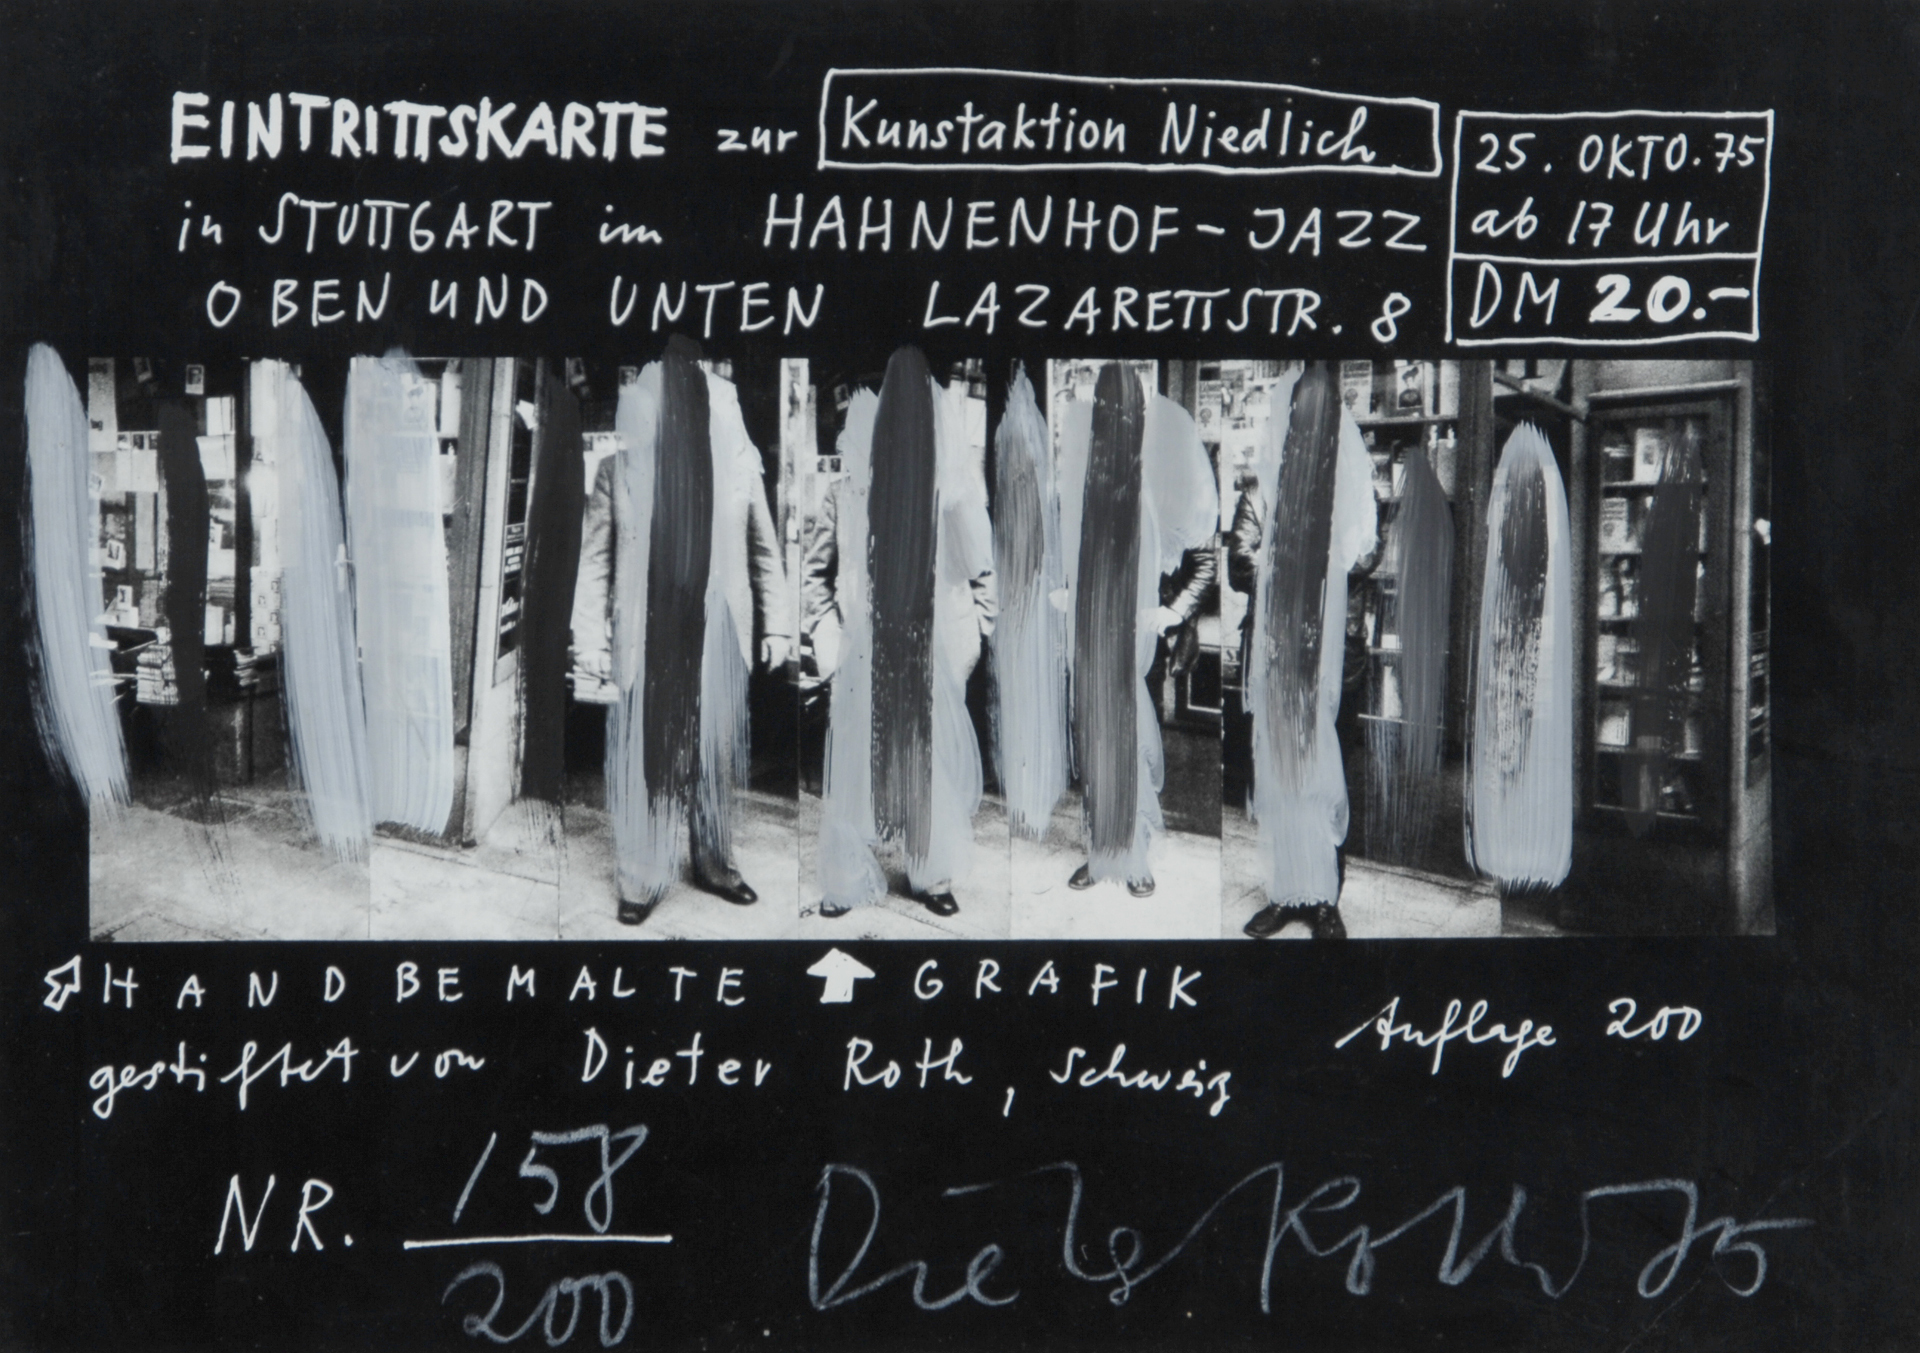 EINTRITTSKARTE zur Kunstaktion Niedlich
25. OKTO. 75
ab 17 Uhr
DM 20.-
in STUTTGART im HAHNENHOF-JAZZ
OBEN UND UNTEN LAZARETTSTR. 8
HANDBEMALTE GRAFIK
gestiftet von Dieter Roth, Schweiz
Auflage 200
NR. 158
200
Dieter Roth 75